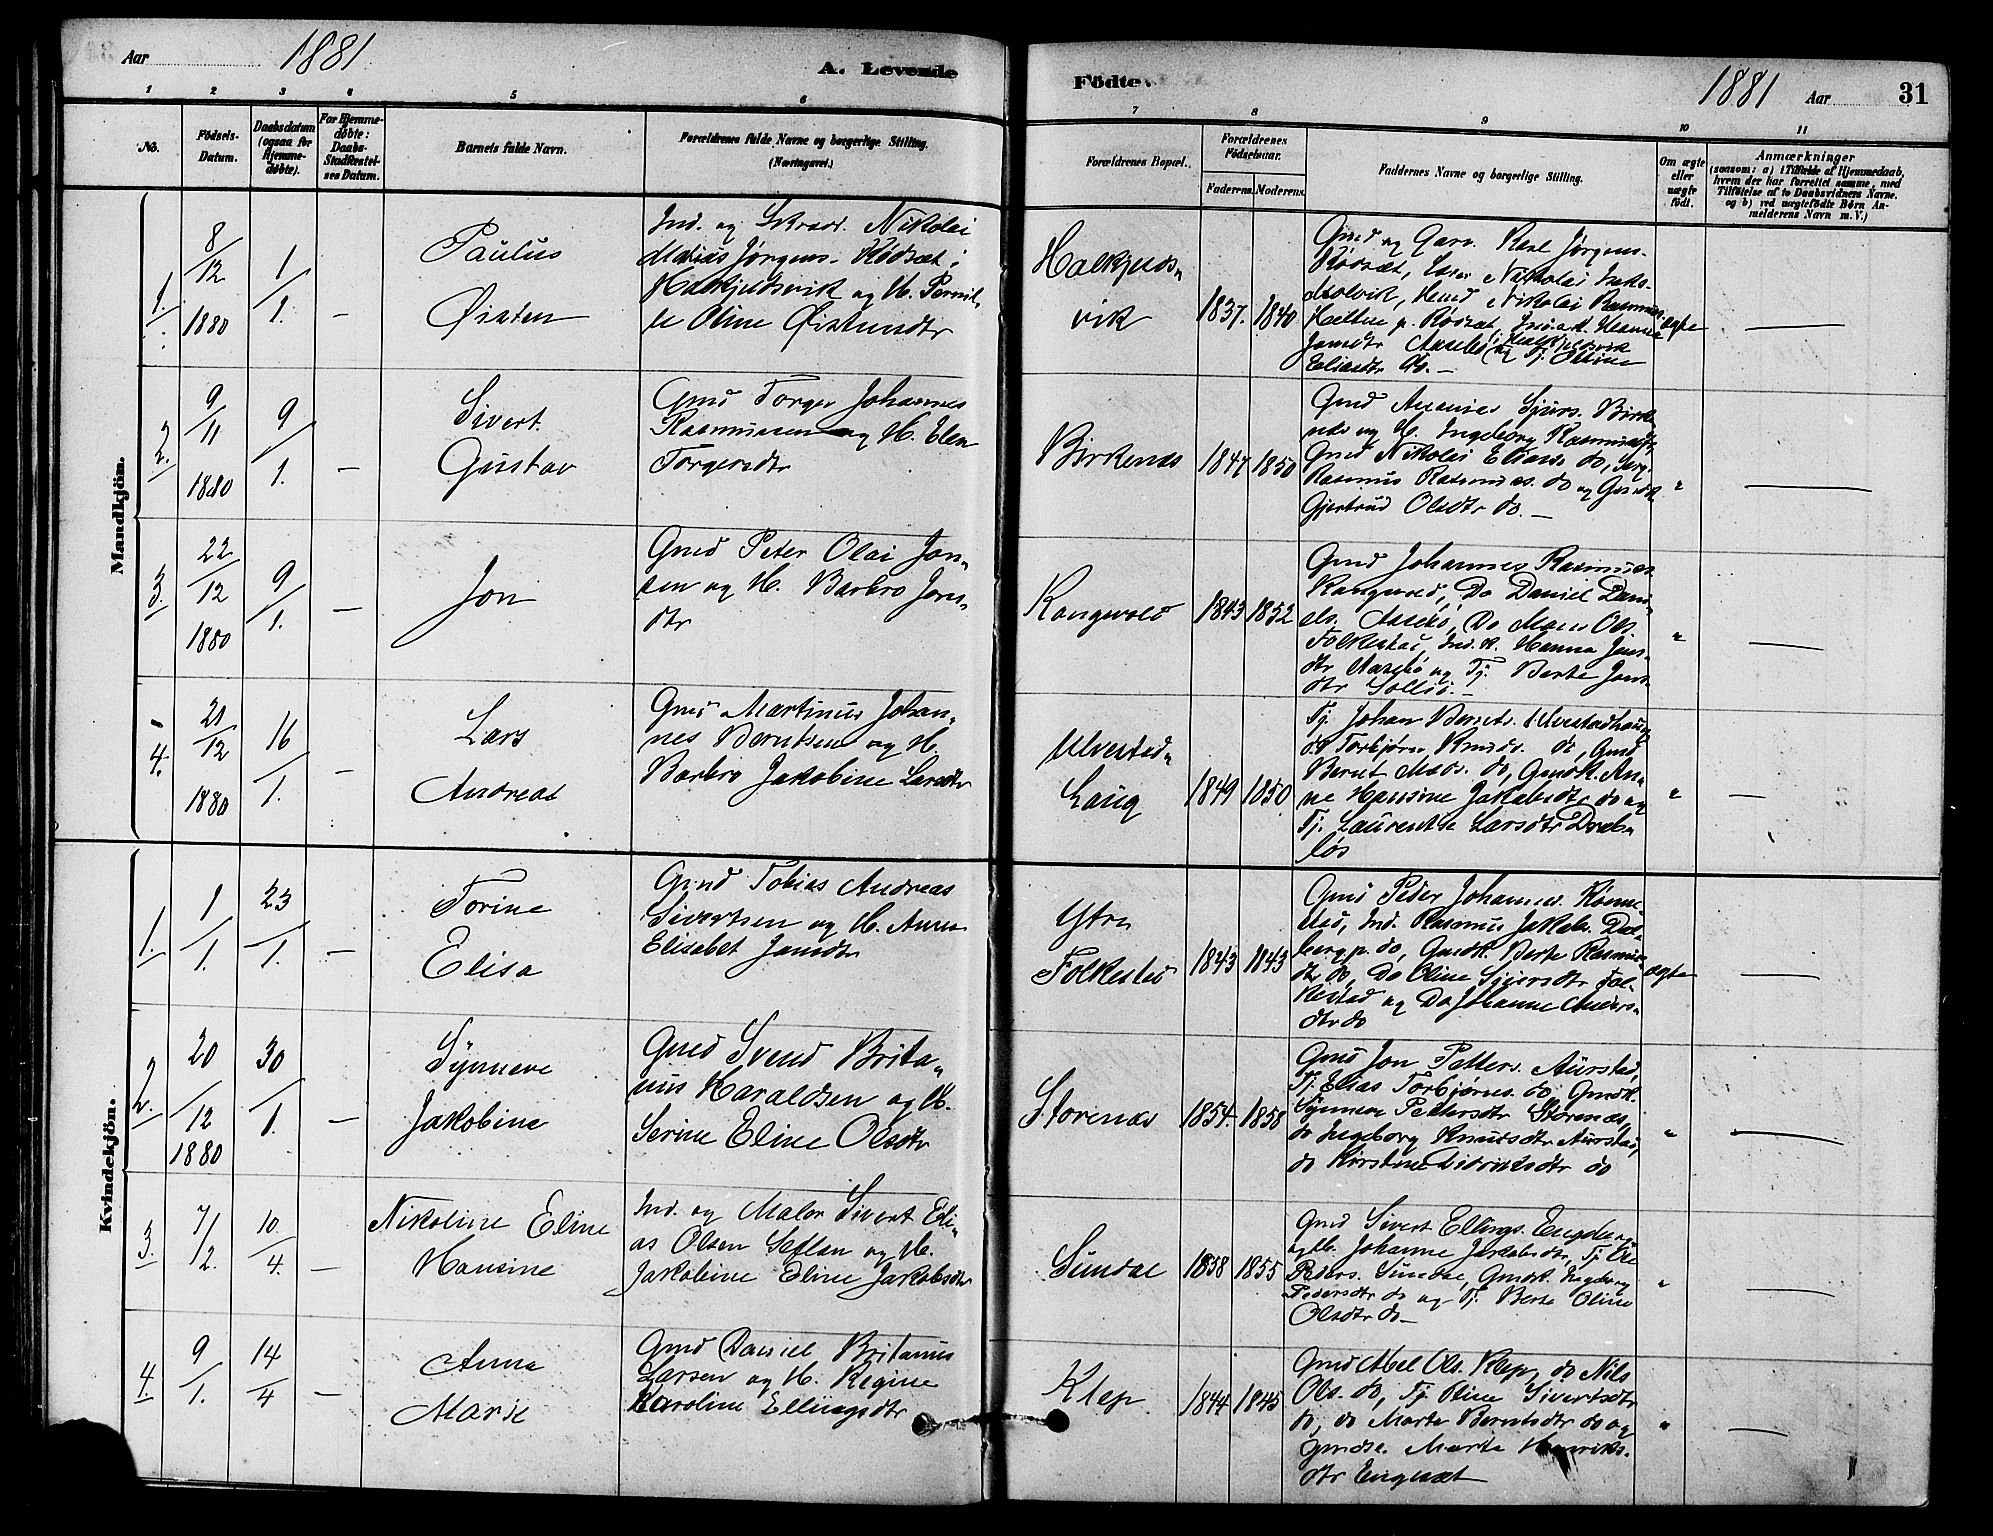 Aar 1881
A. Levende
Födte.
1881 Aar 31
1 2 3 4 5 6 7 8 9 10 11
No.
Födsels-
Datum.
Daabsdatum
(ogsaa for
Hjemme-
døbte).
For Hjemme-
døbte:
Daabs-
Stadfæstel-
ses Datum.
Barnets fulde Navn.
Forældrenes fulde Navne og borgerlige Stilling.
(Næringsvei.)
Forældrenes Bopæl.
Forældrenes
Födselsaar.
Faderens. Moderens.
Faddernes Navne og borgerlige Stilling.
Om ægte
eller
uægte
födt.
Anmærkninger
(saasom: a) i Tilfælde af Hjemmedaab,
hvem der har forrettet samme, med
Tilføielse af to Daabsvidners Navne.
og b) ved uægtefödte Børn An-
melderens Navn m. V.)
Mandkjön.
1. 8/12 1880 1/1. –
Paulus
Øisten
Ind. og Skræd. Nikolai
Matias Jørgens. Rødsæt i
Halkjeldsvik og H. Pernil-
le Oline Østensdtr
Halkjelds-
vik
1837. 1840
Gmd og Garv. Karl Jørgens.
Rødsæt, Lærer Nikolai
Nikolai Rasmus.
p. Rødsæt,
Jonsdtr Aasebø og Tj. Oline
Eliasdtr do. –
ægte
2. 9/11 1880 9/1. –
Sivert
Gustav
Gmd Torger Johannes
Rasmussen og H. Elen
Torgersdtr
Birkenes
1847 1850
Gmd Ananias Sjurs. Birke-
nes og H. Ingeborg Rasmusdtr,
Gmd Nikolai Elias. do,
Rasmus Rasmus. do og Gmdk.
Gjertrud Olsdtr do. –
"
3. 22/12 1880 9/1. –
Jon
Gmd Peter Olai Jon-
sen og H. Barbro Jons-
dtr
Rangvold
1843 1852
Gmd Johannes Rasmus.
Do Daniel Dani-
els. Aasebø, Do Mons Ols.
Folkestad, Ind. k. Hanna Jons-
dtr Aasebø og Tj. Berte Jons-
dtr
"
4. 21/12 1880 16/1. –
Lars
Andreas
Gmd Martinus Johan-
nes Berntsen og H.
Barbro Jakobine Larsdtr
Ulvestad-
haug
1849 1850
Tj. Johan Bernts. Ulvestadhaug
do Torbjørn Knuds. do, Gmd
Bernt Mads. do, Gmdk. An-
ne Hansine Jakobsdtr do og
Tj. Laurentse Larsdtr Drab-
løs
"
Kvindekjön.
1. 1/1. 23/1. –
Torine
Elisa
Gmd Tobias Andreas
Sivertsen og H. Anne
Elisabet Jonsdtr
Ytre
Folkestad
1843 1843
Gmd Peder Johannes. Rønne-
stad, Ind. Rasmus Jakobs. Dal-
berg p. do, Gmdk. Berte Rasmus-
dtr do, Do Oline Sjursdtr Fol-
kestad og Do Johanne Anders-
dtr do
ægte
2. 20/12 1880 30/1. –
Synneve
Jakobine
Gmd Svend Brita-
nus Haraldsen og H.
Serine Eline Olsdtr
Storenes
1854. 1858
Gmd Jon Petters. Aurstad,
Tj. Elias Torbjørns. do, Gmdk.
Synneve Pettersdtr Storenes,
do Ingeborg Knudsdtr Aurstad,
do Kirstine Didriksdtr do
"
3. 7/2. 10/4. –
Nikoline Eline
Hansine
Ind. og Maler Sivert Eli-
as Olsen Sætlen og H.
Jakobine Eline Jakobsdtr
Sundal
1858 1855
Gmd Sivert Ellings. Engeberg
og H. Johanne Jakobsdtr, Tj. Ole
Peders. Sundal, Gmdk. Ingeborg
Pedersdtr do og Tj. Berte Oline
Olsdtr do –
"
4. 9/1. 14/4 –
Anna
Marie
Gmd Daniel Britanus
Larsen og H. Regine
Karoline Ellingsdtr
Klep
1844 1845
Gmd Abel Ols. Klep, do Nils
Ols. do, Tj. Oline Sivertsdtr
do, do Marte Berntsdtr do og
Gmdk. Marte Henriks-
dtr Engesæt
"